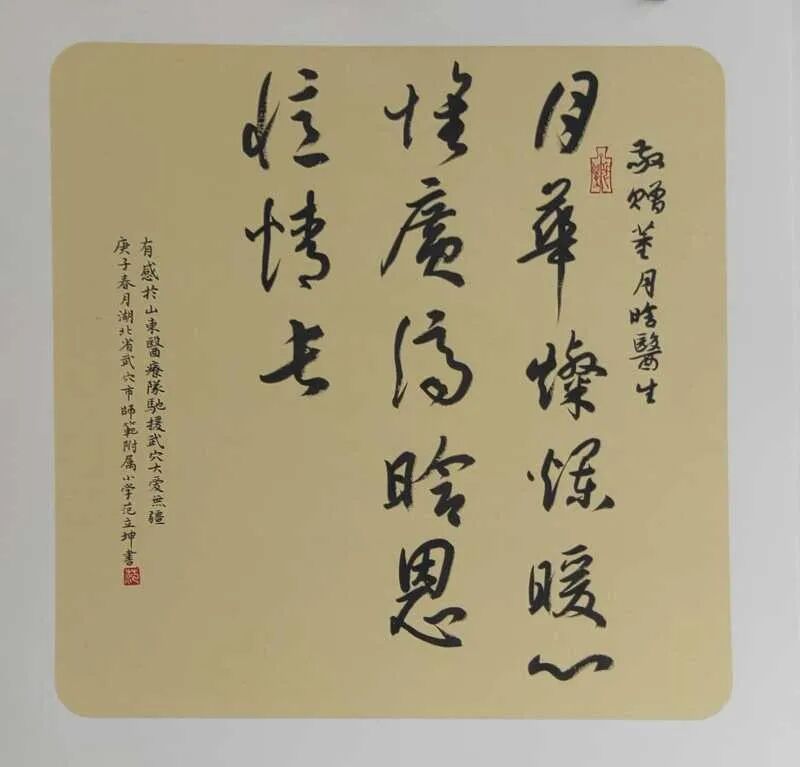 敬贈董月晗醫生
月華燦爛暖心
懷廣濟晗恩
憶情長
有感於山東醫療隊馳援武穴大愛無疆
庚子春月湖北省武穴市師範附属小学范立坤書